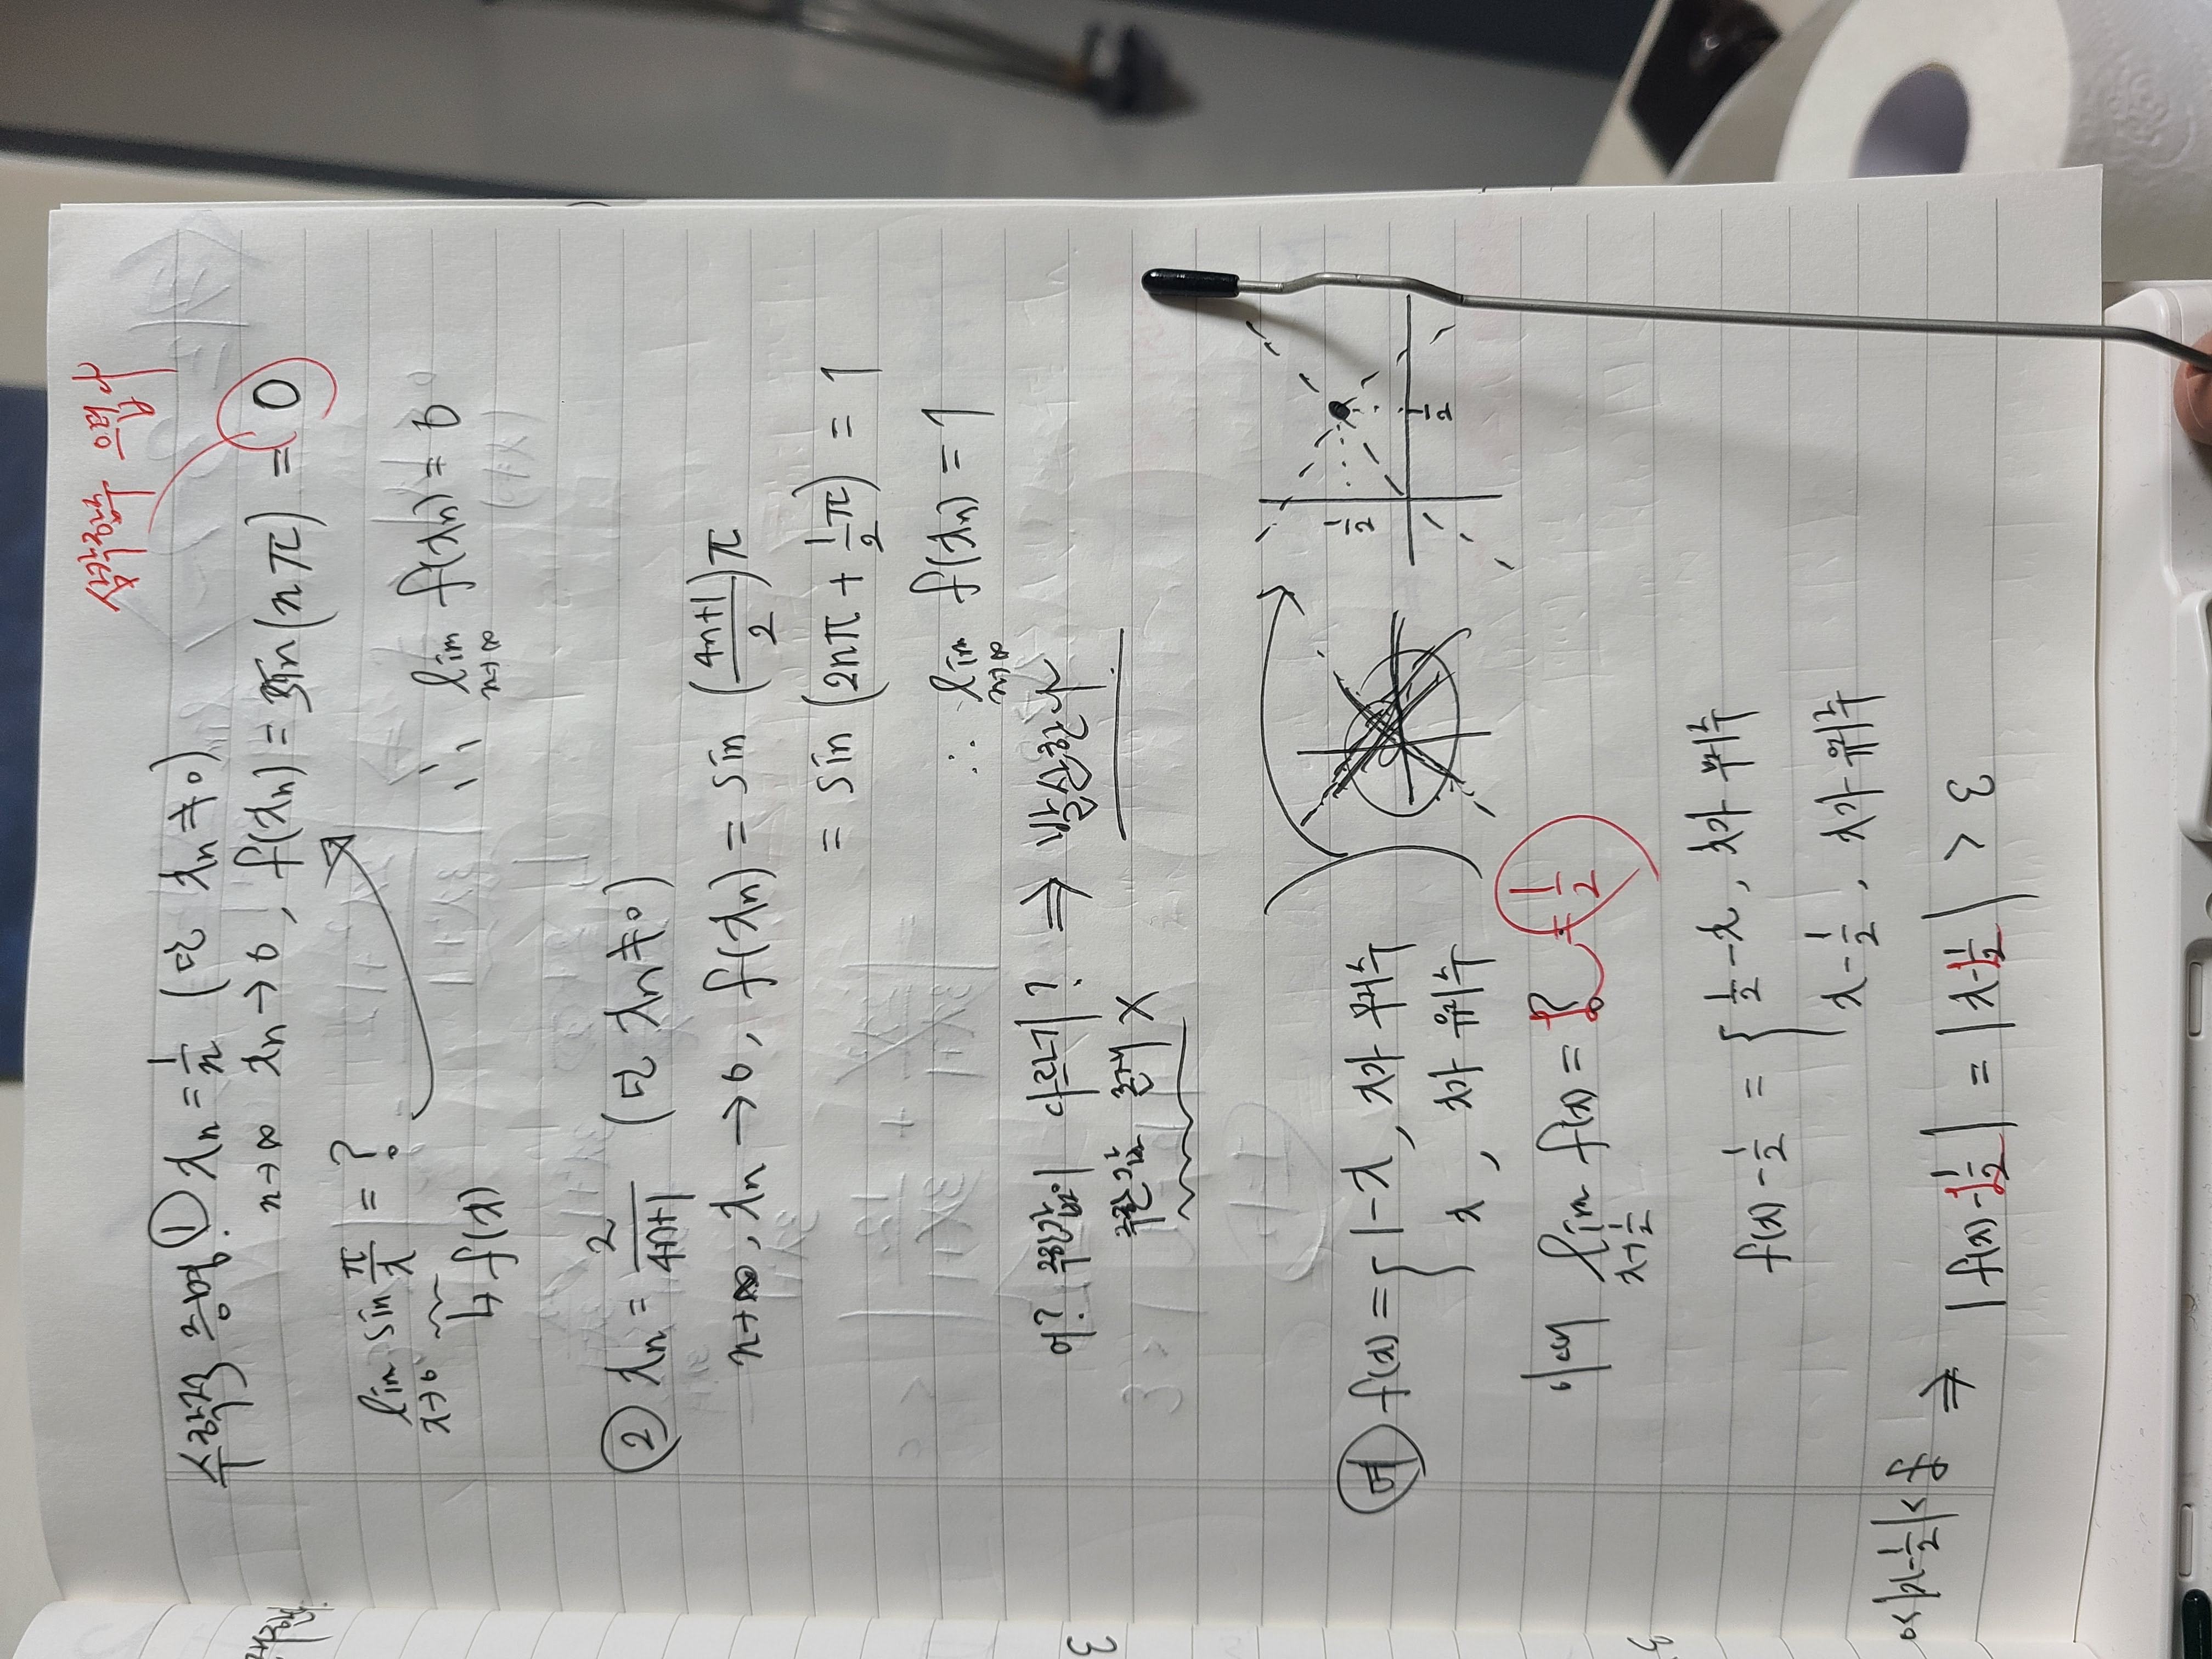 삼각함수 으렵다
수학적 증명. ① xₙ = 1/n (단 xₙ ≠ 0)
n→∞ xₙ → 0, f(xₙ) = sin(nπ) = 0
lim x→0 sin π/x = ?
↳ f(x)
∴ lim n→∞ f(xₙ) = 0
② xₙ = 2/(4n+1) (단 xₙ ≠ 0)
n→∞, xₙ → 0, f(xₙ) = sin ((4n+1)/2)π
= sin (2nπ + 1/2 π) = 1
∴ lim n→∞ f(xₙ) = 1
어? 극한값이 다르기? ⇒ 발산한다.
극한값 존재 X
예 f(x) = { 1-x, x가 무리수
x, x가 유리수
1/2
1/2
이때 lim x→1/2 f(x) = ? = 1/2
f(x) - 1/2 = { 1/2 - x, x가 무리수
x - 1/2, x가 유리수
0 < |x - 1/2| < δ ⇒ |f(x) - 1/2| = |x - 1/2| > ε